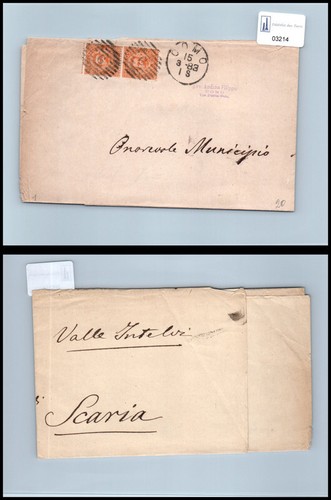 03214
COMO
15
3-83
1 S
Onorevole Municipio
20
Valle Intelvi
Scaria